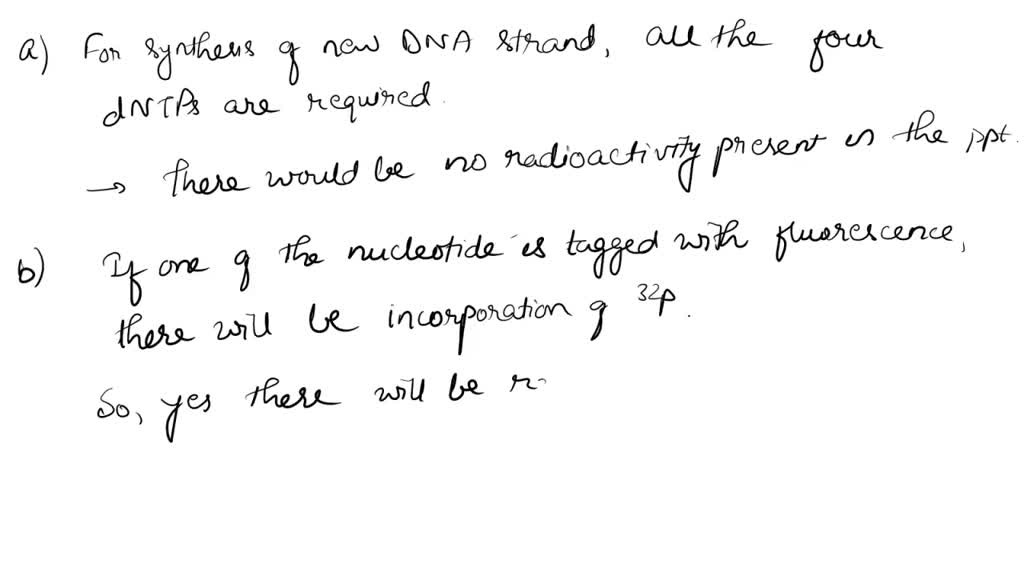 a) For synthesis of new DNA strand, all the four
dNTPs are required.
→ there would be no radioactivity present in the ppt.
b) If one of the nucleotide is tagged with fluorescence,
there will be incorporation of 32P.
So, yes there will be r